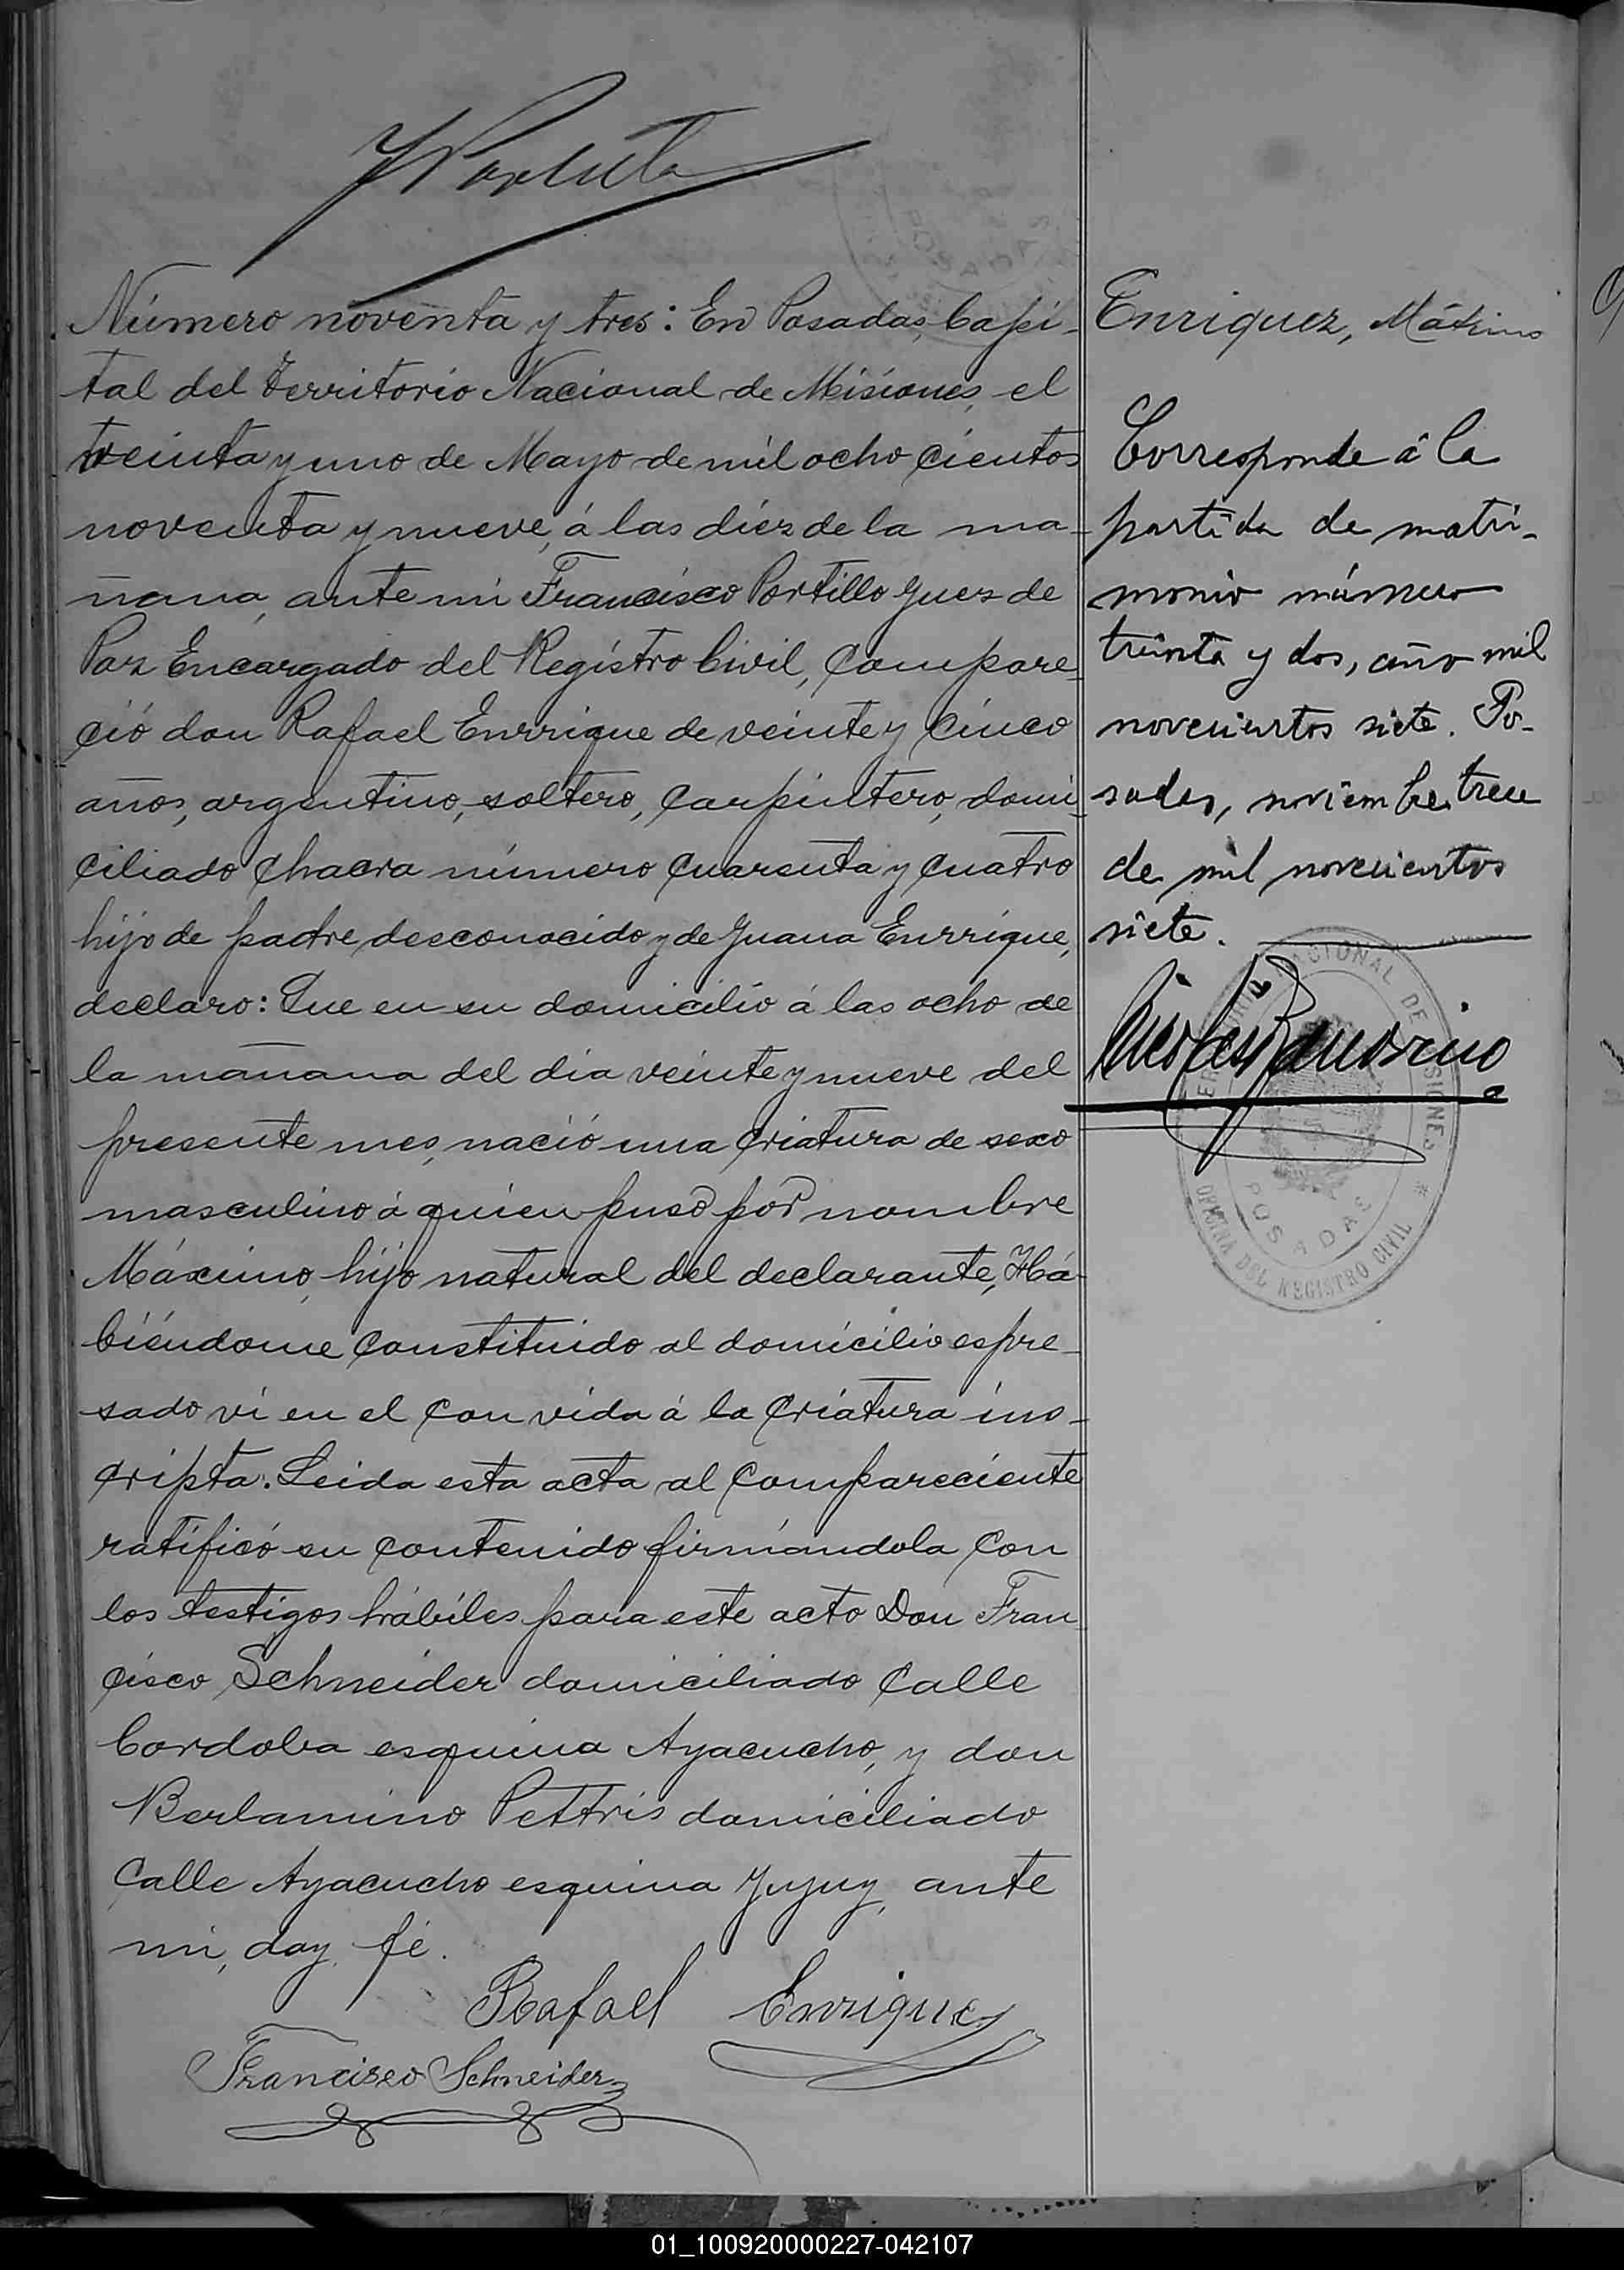 Número noventa y tres: En Posadas, Capi-
tal del Territorio Nacional de Misiones, el
treinta y uno de Mayo de mil ocho cientos
noventa y nueve, á las diez de la ma-
ñana, ante mi Francisco Portillo Juez de
Paz Encargado del Registro Civil, compare-
ció don Rafael Enrrique de veinte y cinco
años, argentino, soltero, carpintero, domi-
ciliado chacra número cuarenta y cuatro
hijo de padre desconocido y de Juana Enrrique,
declaro: Que en su domicilio á las ocho de
la mañana del dia veinte y nueve del
presente mes, nació una criatura de sexo
masculino á quien puso por nombre
Máximo, hijo natural del declarante, Há-
biéndome constituido al domicilio espre-
sado vi en el con vida á la criatura ins-
cripta. Leida esta acta al compareciente
ratificó su contenido firmándola con
los testigos hábiles para este acto Don Fran-
cisco Schneider domiciliado calle
Cordoba esquina Ayacucho, y don
Berlamino Pettris domiciliado
calle Ayacucho esquina Jujuy, ante
mi, doy fé.
Rafael Enrrique
Francisco Schneider
Enriquez, Máximo
Corresponde á la
partida de matri-
monio número
treinta y dos, año mil
novecientos siete. Po-
sadas, noviembre trece
de mil novecientos
siete.
TERRITORIO NACIONAL DE MISIONES
POSADAS
OFICINA DEL REGISTRO CIVIL
01_100920000227-042107